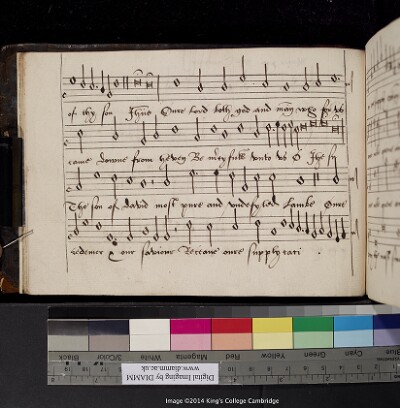 of thy son Jhesus Oure lord both god and man who for us
came downe from heven Be mercyfull unto us O Jhesu
The son of david most pure and undefyled Lambe Oure
redemer & our saviour Receave oure supplycati
Black 3/Color White Magenta Red Yellow Green Cyan Blue
Digital Imaging by DIAMM
www.diamm.ac.uk
Image ©2014 King's College Cambridge